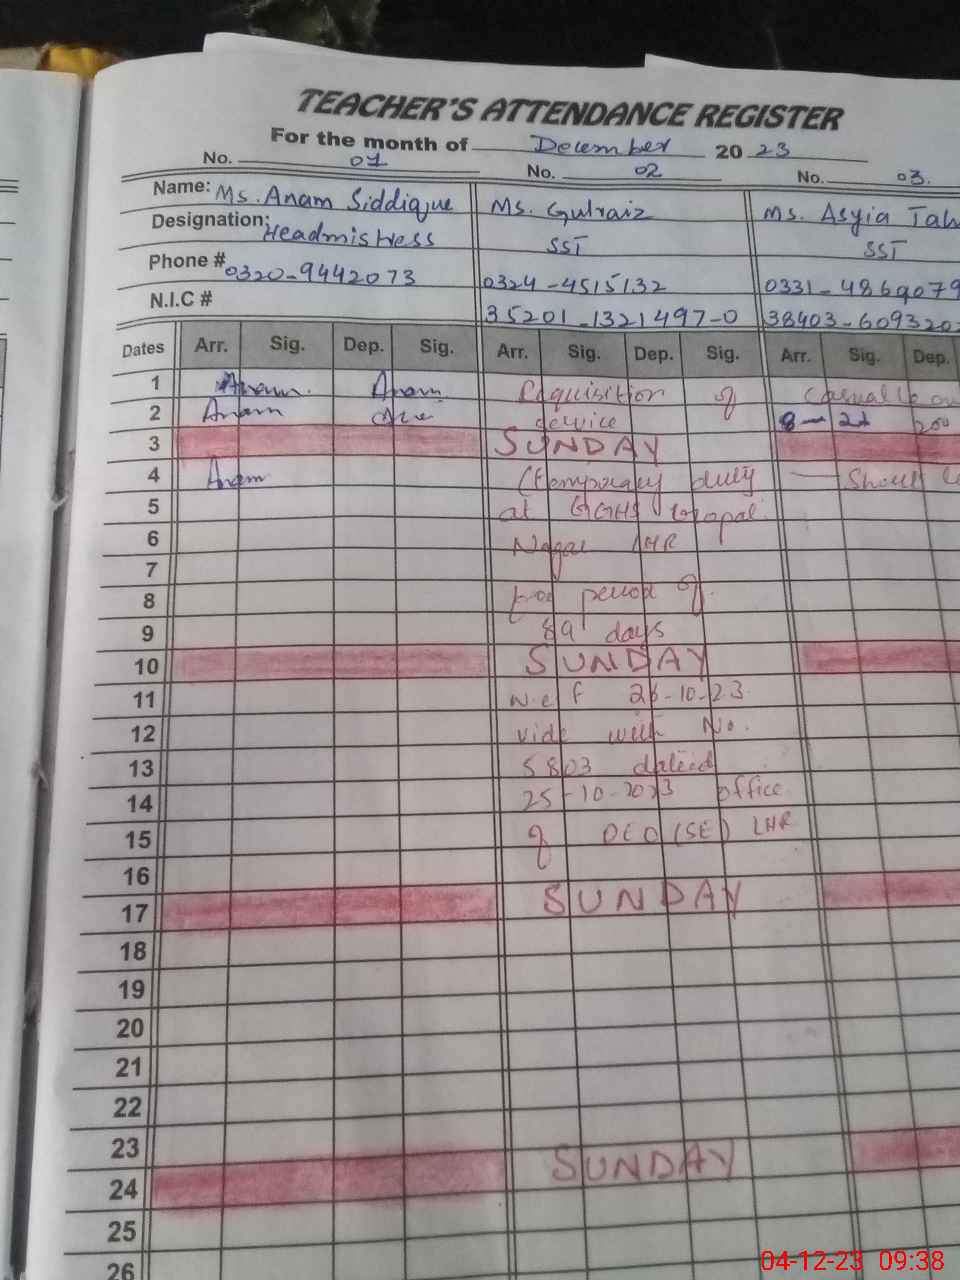 TEACHER'S ATTENDANCE REGISTER
For the month of December 2023
No. 01 No. 02 No. 03.
Name: Ms. Anam Siddique Ms. Gulraiz Ms. Asyia
Designation: Headmistress SST SST
Phone # 0320-9442073 0324-4515132 0331-4869079
N.I.C # 35201-1321497-0 38403-609320
Dates Arr. Sig. Dep. Sig. Arr. Sig. Dep. Sig. Arr. Sig. Dep.
1 Anam. Anam Requisition of Casual
2 Anam service
3 SUNDAY
4 Anam (temporary duty Should
5 at GGHS Gopal
6 Nagar LHR
7
8 for period of
9 89 days
10 SUNDAY
11 w.e f 26-10-23
12 vide with No.
13 5803 dated
14 25-10-2023 office
15 of DEO (SE) LHR
16
17 SUNDAY
18
19
20
21
22
23
24 SUNDAY
25
26
04-12-23 09:38